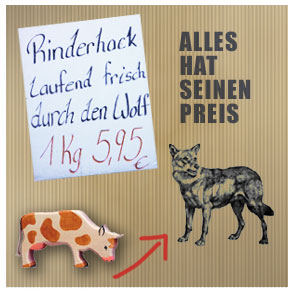 Rinderhack
laufend frisch
durch den Wolf
1 Kg 5,95 €
ALLES
HAT
SEINEN
PREIS